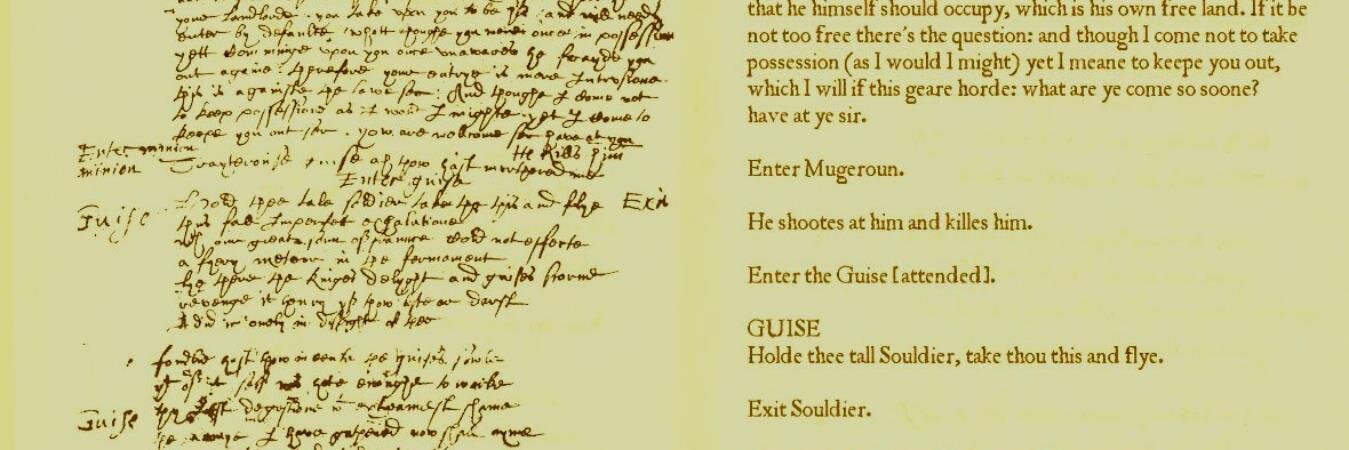 your landlorde. you take upon you to be
enter by defaulte, whatt thoughe you weare once in possession
yett comminge upon you once unawares he frayde you
out againe. therefore your entrye is mere Intrusione
this is againste the lawe ser. And thoughe I come not
to keep possessione as I wold I mighte yet I come to
keepe you out ser. yow are wellcome ser have at you
Enter minion
He Kills him
minion Trayterouse guise ah thow hast murthered me
Enter guise
Guise Hold thee tale soldier take thee this and flye Exit
thus fall Imperfett exhalatione
our great sonn of fraunce Cold not effecte
a fyery meteor in the fermament
lye there the Kinges delyght and guises scorne
revenge it henry yf thow liste or darst
I did it onely in dispight of thee
fondlie hast thow in the guises sowle
yt of it self hote enoughe to worke
Guise thy Just degestione extreamest shame
the armye I have gathered now shall ayme
that he himself should occupy, which is his own free land. If it be
not too free there's the question: and though I come not to take
possession (as I would I might) yet I meane to keepe you out,
which I will if this geare horde: what are ye come so soone?
have at ye sir.
Enter Mugeroun.
He shootes at him and killes him.
Enter the Guise [attended].
GUISE
Holde thee tall Souldier, take thou this and flye.
Exit Souldier.